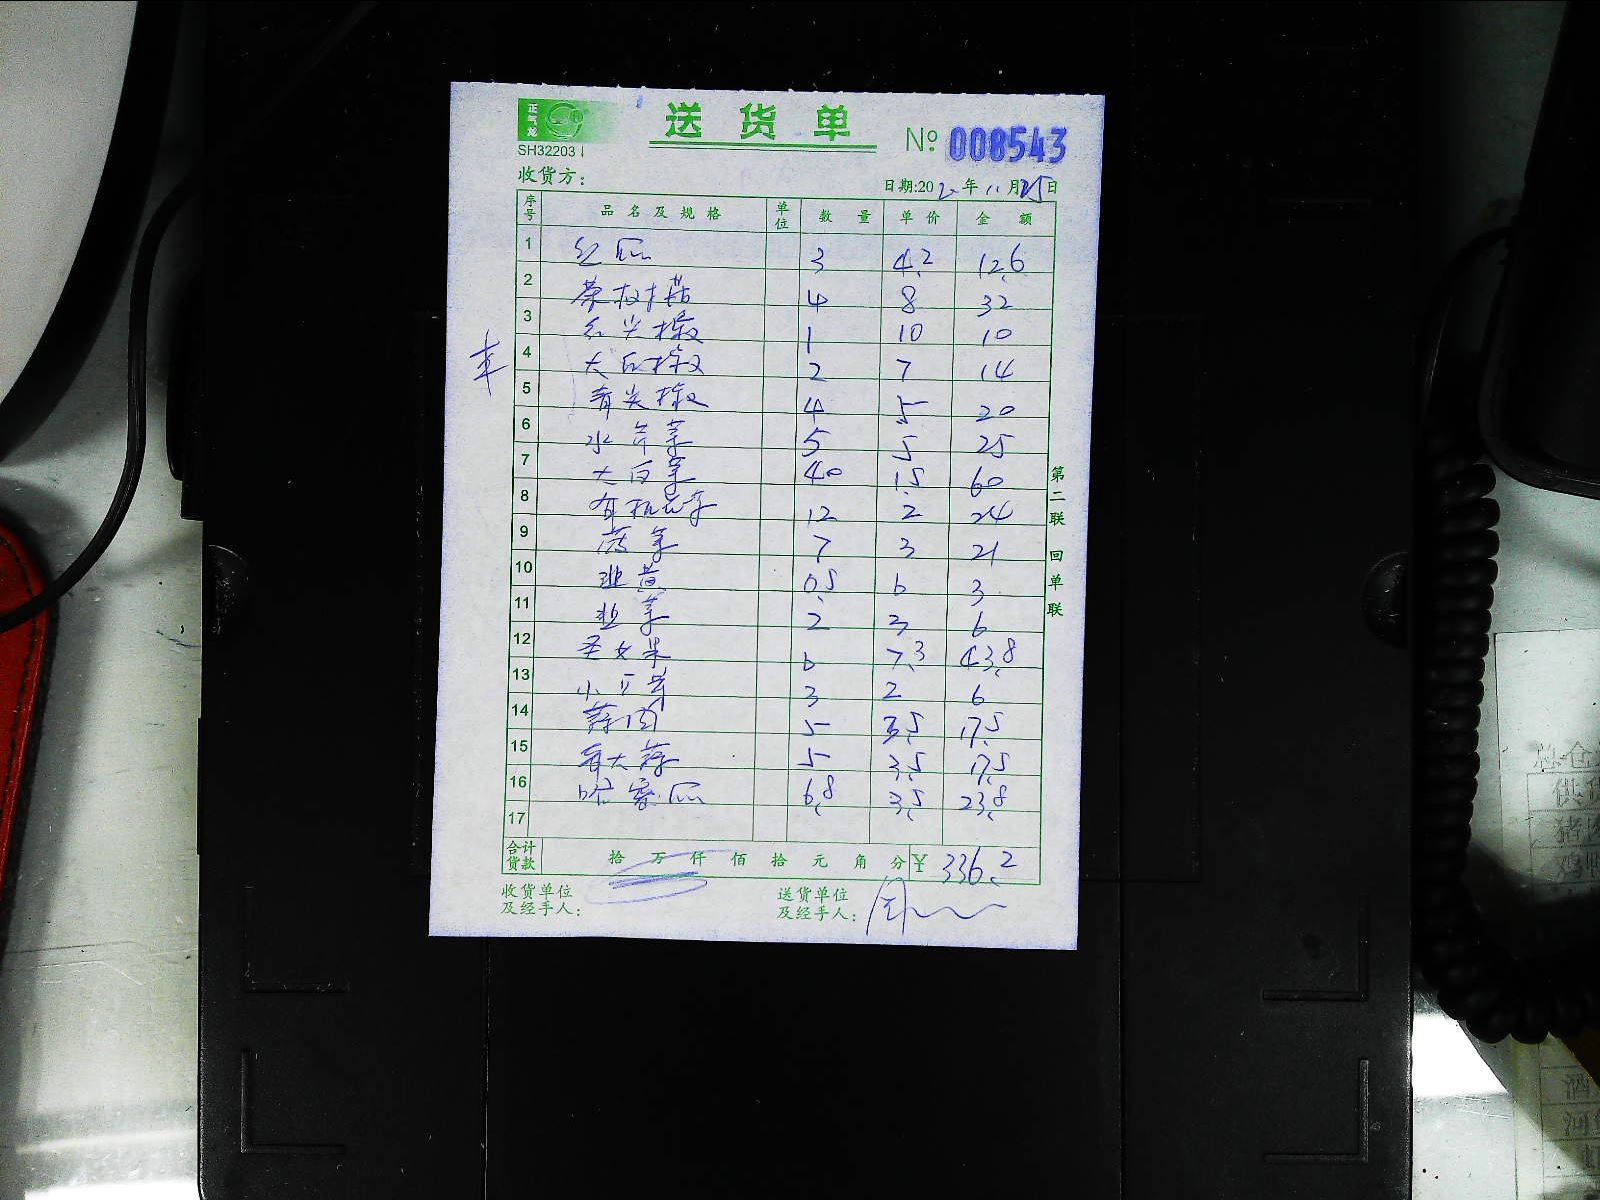 正气龙
送货单
№ 008543
SH32203
收货方：
日期:202 年 11 月 25 日
序号 品名及规格 单位 数量 单价 金额
1 红瓜 3 4.2 12.6
2 茶树菇 4 8 32
3 红尖椒 1 10 10
4 大红椒 2 7 14
5 青尖椒 4 5 20
6 水芹菜 5 5 25
7 大白菜 40 1.5 60
8 有机花菜 12 2 24
9 菠菜 7 3 21
10 韭黄 0.5 6 3
11 韭菜 2 3 6
12 圣女果 6 7.3 43.8
13 小豆芽 3 2 6
14 蒜肉 5 3.5 17.5
15 青大蒜 5 3.5 17.5
16 哈密瓜 6.8 3.5 23.8
17
合计货款 拾 万 仟 佰 拾 元 角 分 ¥ 336.2
收货单位及经手人：
送货单位及经手人：
第二联 回单联
供
猪
鸡
酒
河